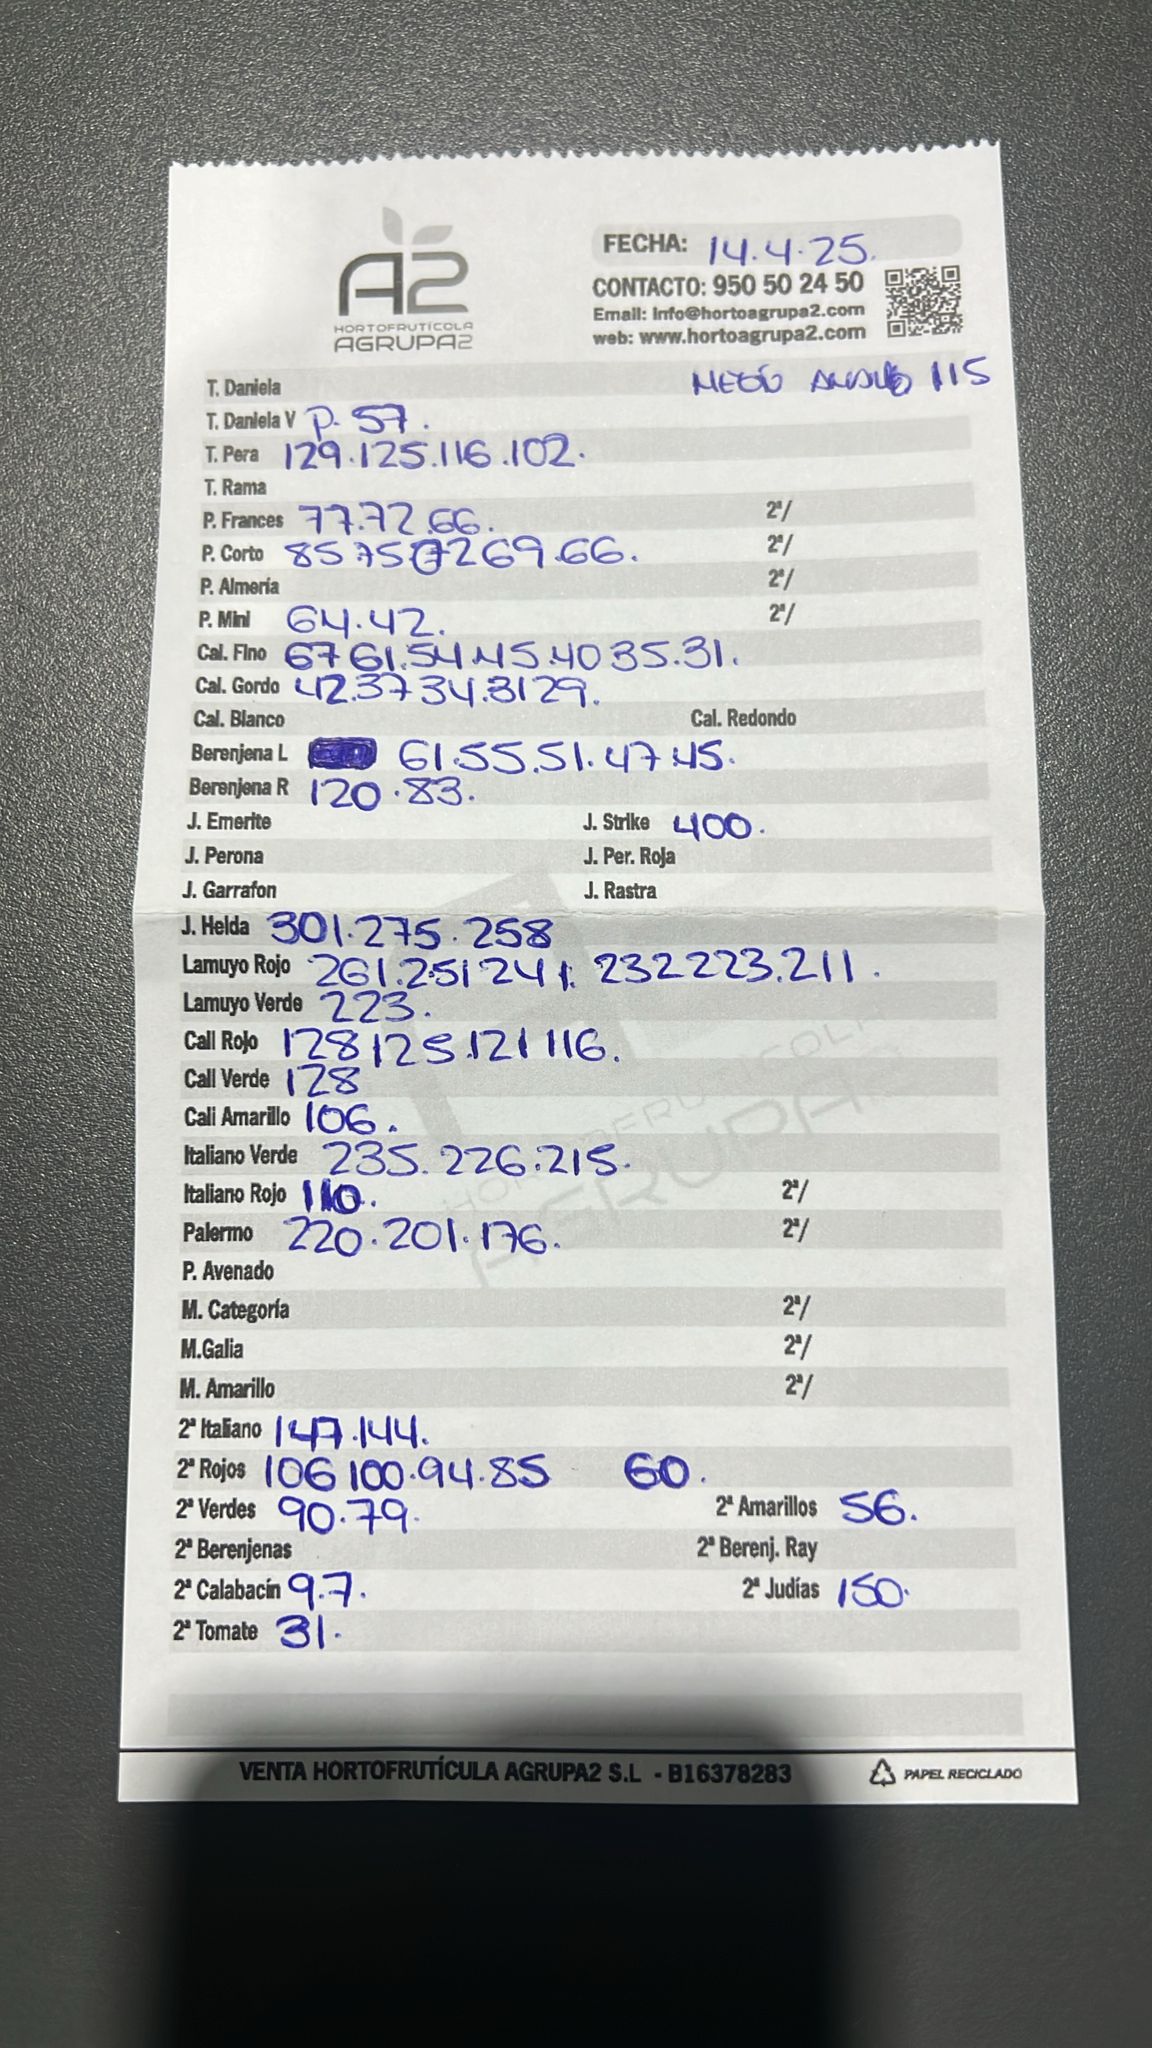 A2
HORTOFRUTÍCOLA
AGRUPA2
FECHA: 14.4.25.
CONTACTO: 950 50 24 50
Email: info@hortoagrupa2.com
web: www.hortoagrupa2.com
T. Daniela 115
T. Daniela V P. 57.
T. Pera 129.125.116.102.
T. Rama
P. Frances 77.72.66. 2ª/
P. Corto 85 75 7269.66. 2ª/
P. Almería 2ª/
P. Mini 64.42. 2ª/
Cal. Fino 67 61.54.45.40 35.31.
Cal. Gordo 42.37 34.3129.
Cal. Blanco Cal. Redondo
Berenjena L 61.55.51.47.45.
Berenjena R 120.83.
J. Emerite J. Strike 400.
J. Perona J. Per. Roja
J. Garrafon J. Rastra
J. Helda 301.275.258
Lamuyo Rojo 261.251 241. 232 223.211.
Lamuyo Verde 223.
Cali Rojo 128 125.121 116.
Cali Verde 128
Cali Amarillo 106.
Italiano Verde 235.226.215.
Italiano Rojo 110. 2ª/
Palermo 220.201.176. 2ª/
P. Avenado
M. Categoría 2ª/
M.Galia 2ª/
M. Amarillo 2ª/
2ª Italiano 147.144.
2ª Rojos 106 100.94.85 60.
2ª Verdes 90.79. 2ª Amarillos 56.
2ª Berenjenas 2ª Berenj. Ray
2ª Calabacín 9.7. 2ª Judías 150.
2ª Tomate 31.
HORTOFRUTÍCOLA
AGRUPA2
VENTA HORTOFRUTÍCULA AGRUPA2 S.L - B16378283
PAPEL RECICLADO